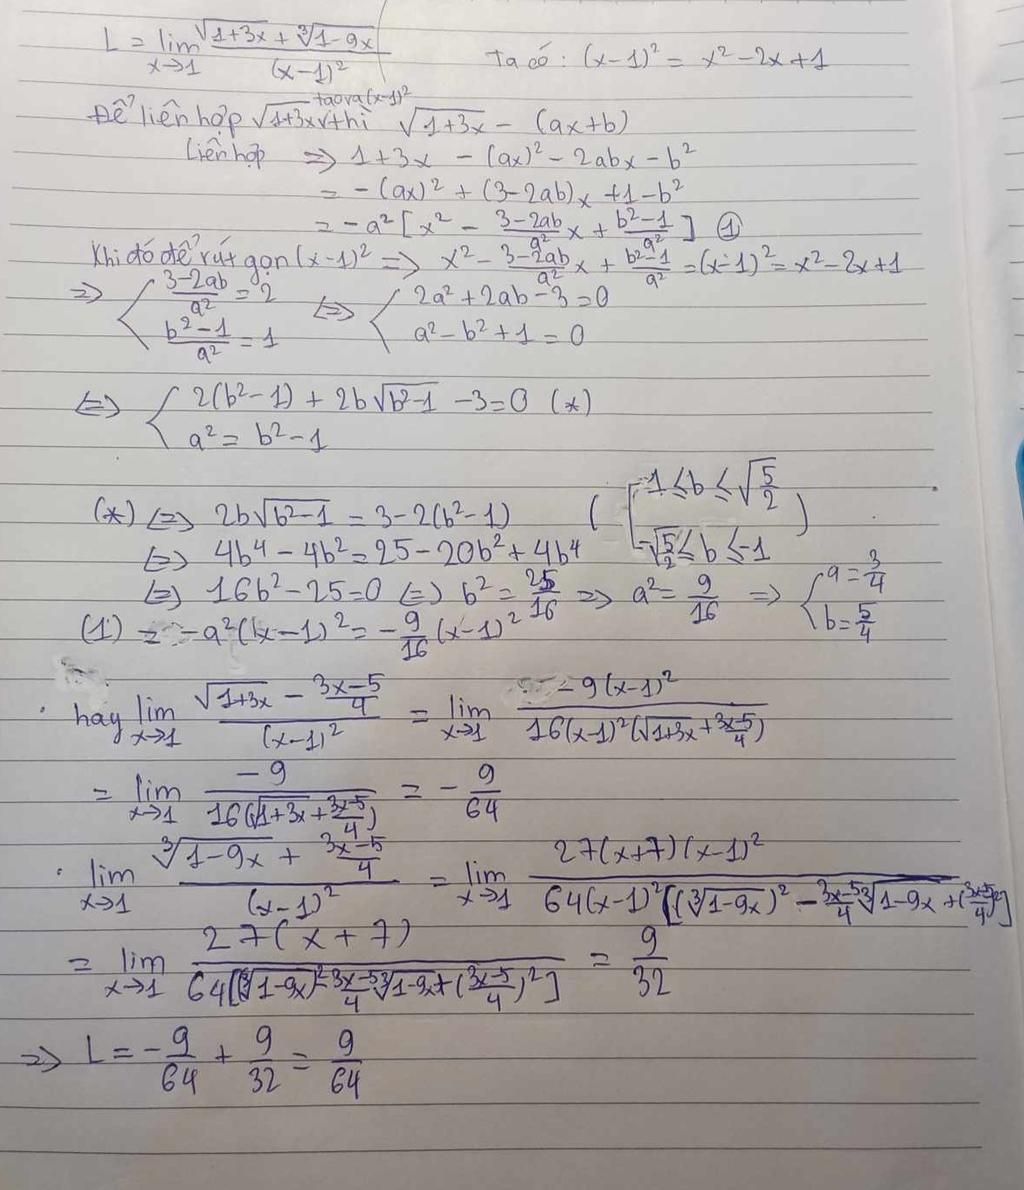 L = lim x→1 (√(1+3x) + ∛(1-9x)) / (x-1)² Ta có : (x-1)² = x² - 2x + 1
Để liên hợp √(1+3x) tạo ra (x-1)² thì √(1+3x) - (ax+b)
Liên hợp => 1+3x - (ax)² - 2abx - b²
= -(ax)² + (3-2ab)x + 1 - b²
= -a² [x² - (3-2ab)/a² x + (b²-1)/a²] ①
Khi đó để rút gọn (x-1)² => x² - (3-2ab)/a² x + (b²-1)/a² = (x-1)² = x² - 2x + 1
=> { (3-2ab)/a² = 2 <=> { 2a² + 2ab - 3 = 0
(b²-1)/a² = 1 a² - b² + 1 = 0
<=> { 2(b²-1) + 2b√(b²-1) - 3 = 0 (*)
a² = b² - 1
(*) <=> 2b√(b²-1) = 3 - 2(b²-1) ( [ 1 ≤ b ≤ √(5/2)
-√(5/2) ≤ b ≤ -1 )
<=> 4b⁴ - 4b² = 25 - 20b² + 4b⁴
<=> 16b² - 25 = 0 <=> b² = 25/16 => a² = 9/16 => { a = 3/4
b = 5/4
(1) = -a²(x-1)² = -9/16 (x-1)²
. hay lim x→1 (√(1+3x) - (3x-5)/4) / (x-1)² = lim x→1 -9(x-1)² / 16(x-1)²(√(1+3x) + (3x-5)/4)
= lim x→1 -9 / 16(√(1+3x) + (3x-5)/4) = -9/64
. lim x→1 (∛(1-9x) + (3x-5)/4) / (x-1)² = lim x→1 27(x+7)(x-1)² / 64(x-1)²[(∛(1-9x))² - (3x-5)/4 ∛(1-9x) + ((3x-5)/4)²]
= lim x→1 27(x+7) / 64[(∛(1-9x))² - (3x-5)/4 ∛(1-9x) + ((3x-5)/4)²] = 9/32
=> L = -9/64 + 9/32 = 9/64